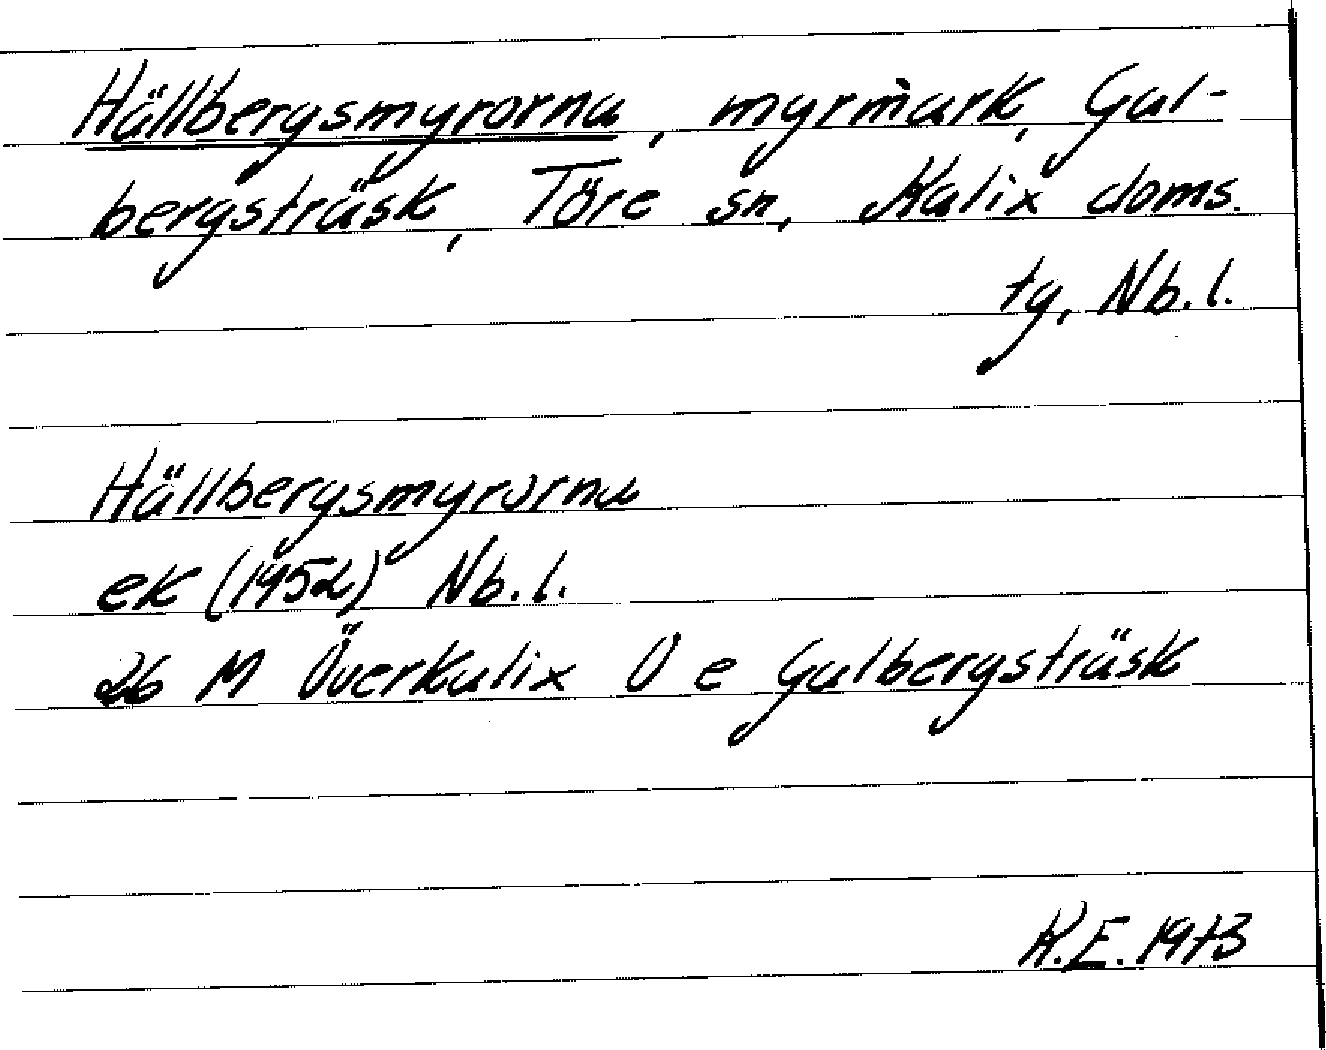 Hällbergsmyrorna, myrmark, Gal-
bergsträsk, Töre sn, Kalix doms.
tg, Nb. l.
Hällbergsmyrorna
ek (1952) Nb. l.
26 M Överkalix Ö e Galbergsträsk
K.E. 1973